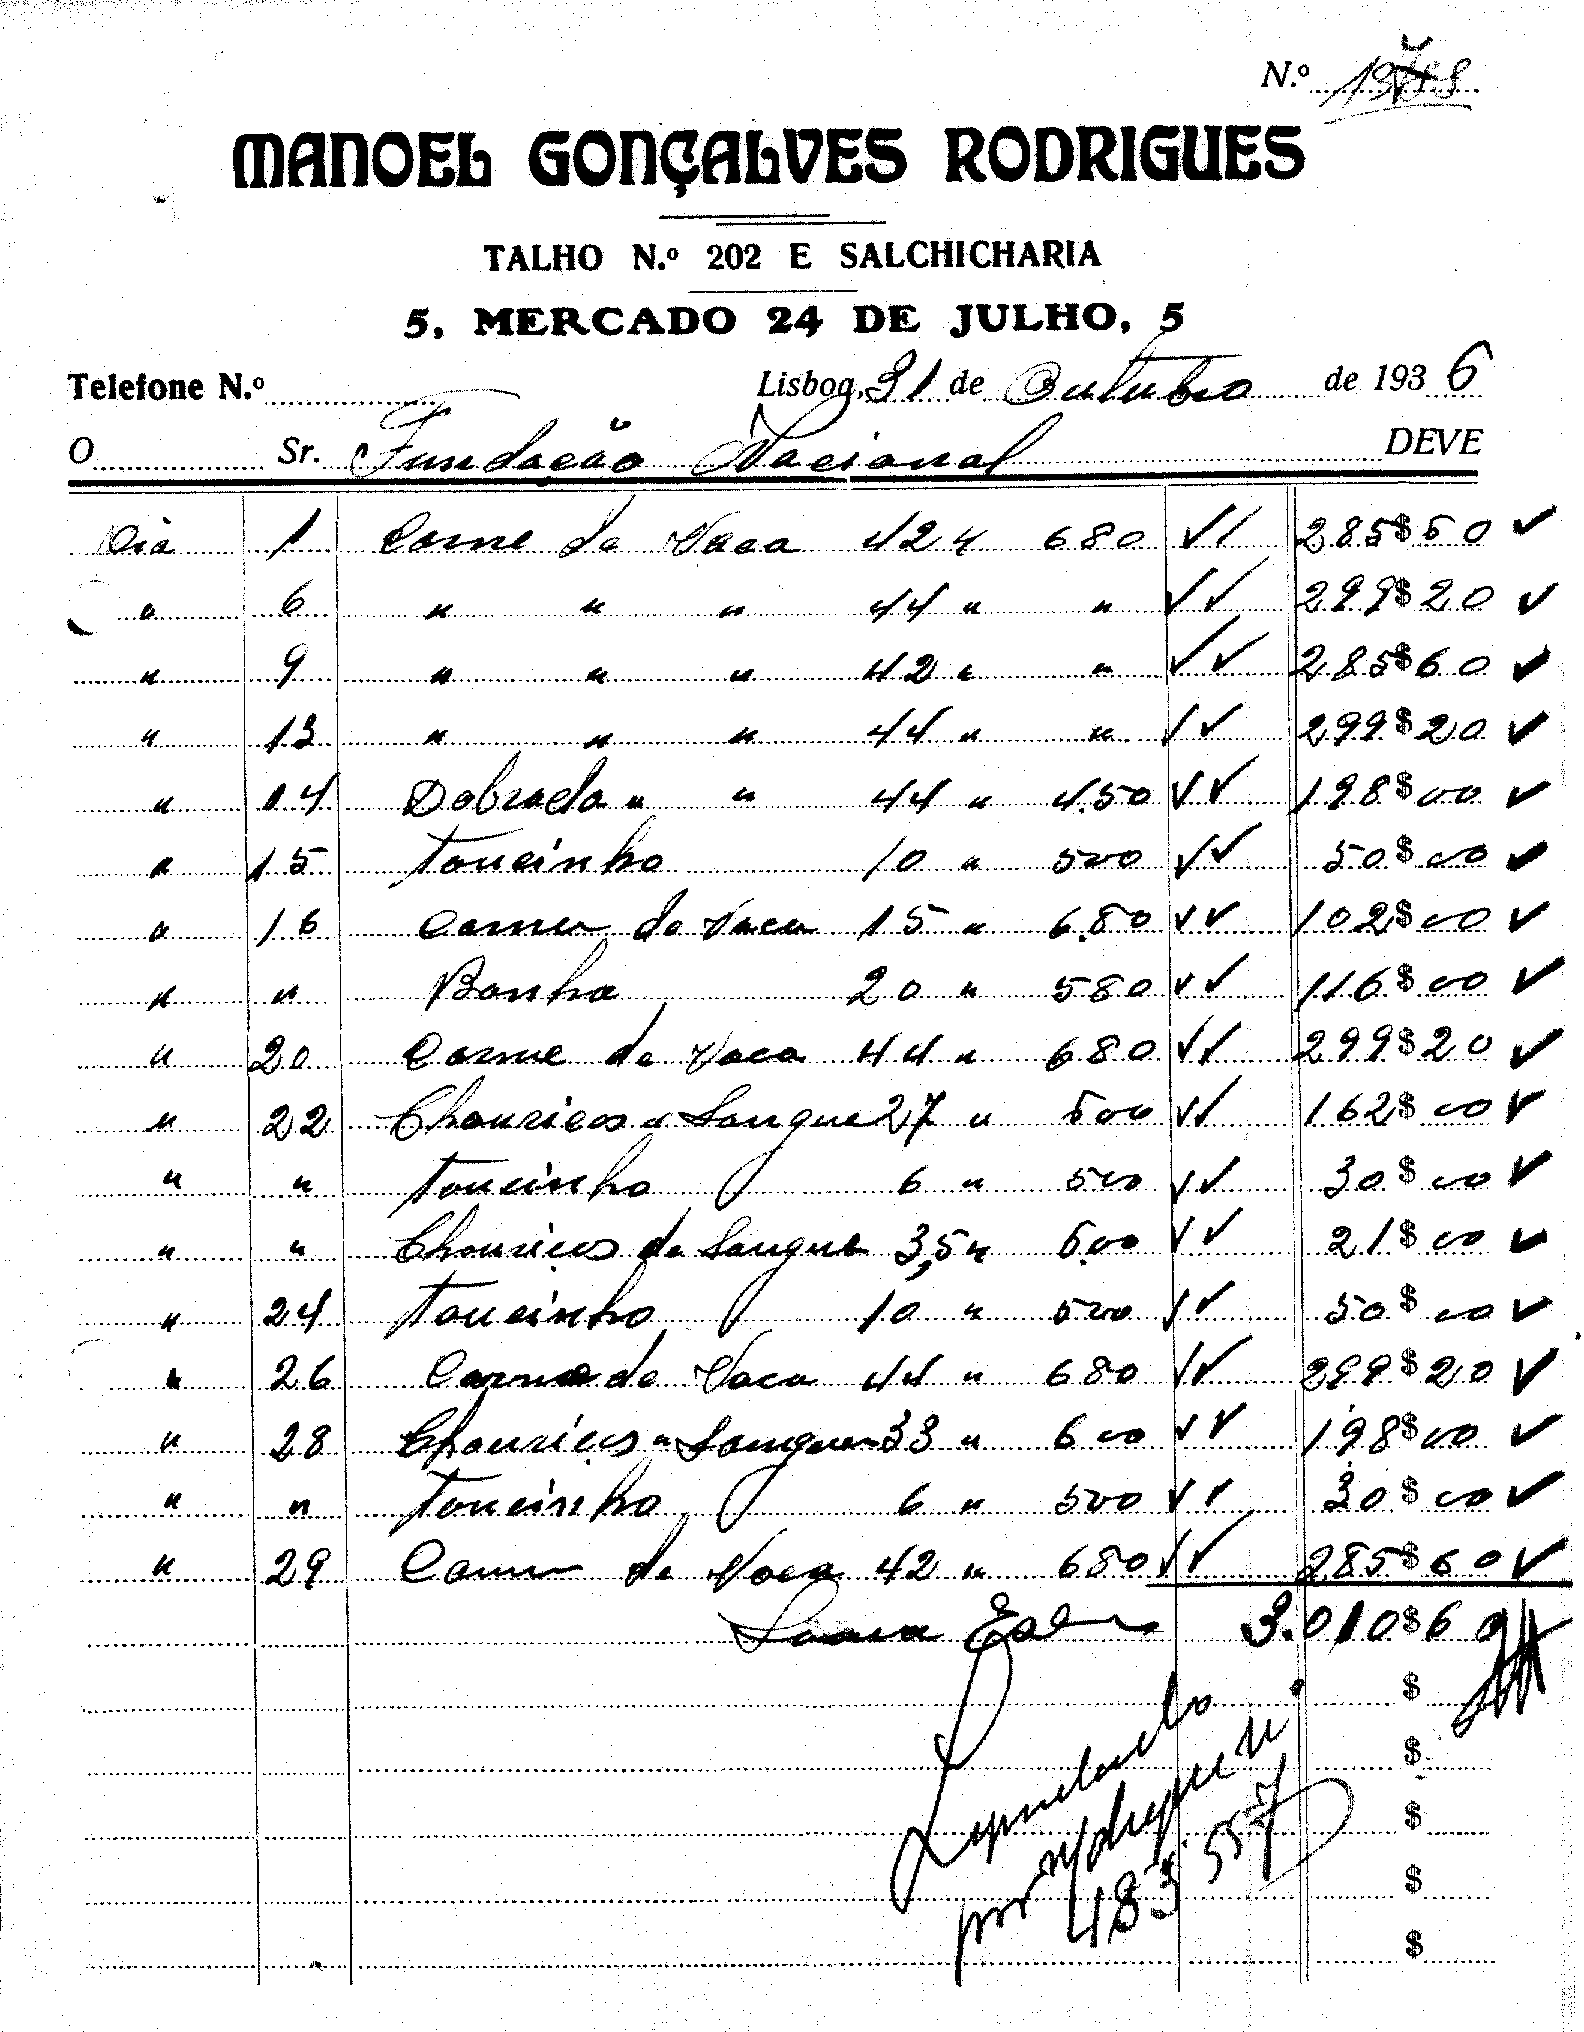 N.º
MANOEL GONÇALVES RODRIGUES
TALHO N.º 202 E SALCHICHARIA
5, MERCADO 24 DE JULHO, 5
Telefone N.º Lisboa, 31 de Outubro de 1936
O Sr. Fundação Nacional DEVE
Dia 1 Carne de Vaca 42 " 680 285$60
" 6 " " " 44 " " 299$20
" 9 " " " 42 " " 285$60
" 13 " " " 44 " " 299$20
" 14 Dobrada " " 44 " 4.50 198$00
" 15 Toucinho 10 " 500 50$00
" 16 Carne de Vaca 15 " 6.80 102$00
" " Banha 20 " 580 116$00
" 20 Carne de Vaca 44 " 680 299$20
" 22 Chouricos " Sangue 27 " 600 162$00
" " Toucinho 6 " 500 30$00
" " Chouricos de Sangue 3,5 " 6.00 21$00
" 24 Toucinho 10 " 500 50$00
" 26 Carne de Vaca 44 " 680 299$20
" 28 Chouricos " Sangue 33 " 600 198$00
" " Toucinho 6 " 500 30$00
" 29 Carne de Vaca 42 " 680 285$60
Soma Esc 3.010$60
$
$
$
$
$
por
483 557